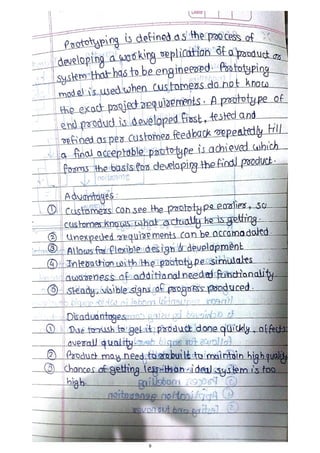 Prototyping is defined as the process of
developing a working replication of a product or
system that has to be engineered. Prototyping
model is used when customers do not know
the exact project requirements. A prototype of
end product is developed first, tested and
refined as per customer feedback repeatedly till
a final acceptable prototype is achieved which
forms the basis for developing the final product.
Advantages
① Customers can see the prototype earlier, so
customer knows what actually he is getting.
② Unexpected requirements can be accomodated
③ Allows for flexible design & development
④ Interaction with the prototype simulates
awareness of additional needed functionality
⑤ steady, visible signs of progress produced.
Disadvantages
① Due to rush to get it product done quickly, affects
overall quality
② Product may need to rebuilt to maintain high quality
③ Chances of getting less-than-ideal system is too
high
9